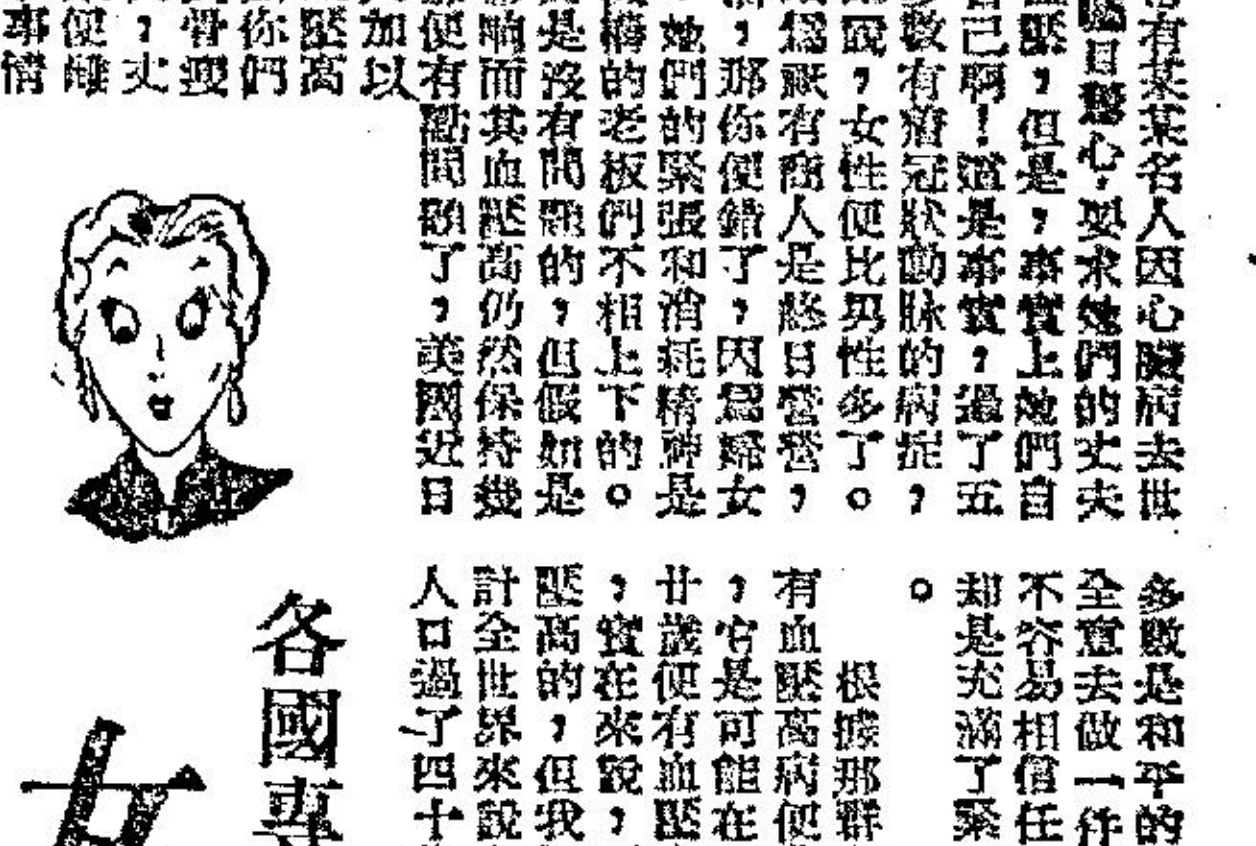 有某某名人因心臟病去世
觸目驚心,要求她們的丈夫
血壓,但是,事實上她們自
己啊!這是事實,過了五
數有冠狀動脉的病症,
說,女性便比男性多了。
爲祇有商人是終日營營,
,那你便錯了,因爲婦女
她們的緊張和消耗精神是
構的老板們不相上下的。
是沒有問題的,但假如是
响而其血壓高仍然保持幾
便有點問題了,美國近日
加以
壓高
你們
骨瘦
,丈
便
事情
多數是和平的
全意去做一件
不容易相信任
却是充滿了緊
。
根據那群
有血壓高病便
,它是可能在
廿歲便有血壓
,實在來說,
壓高的,但我
計全世界來說
人口過了四十
各國專
女